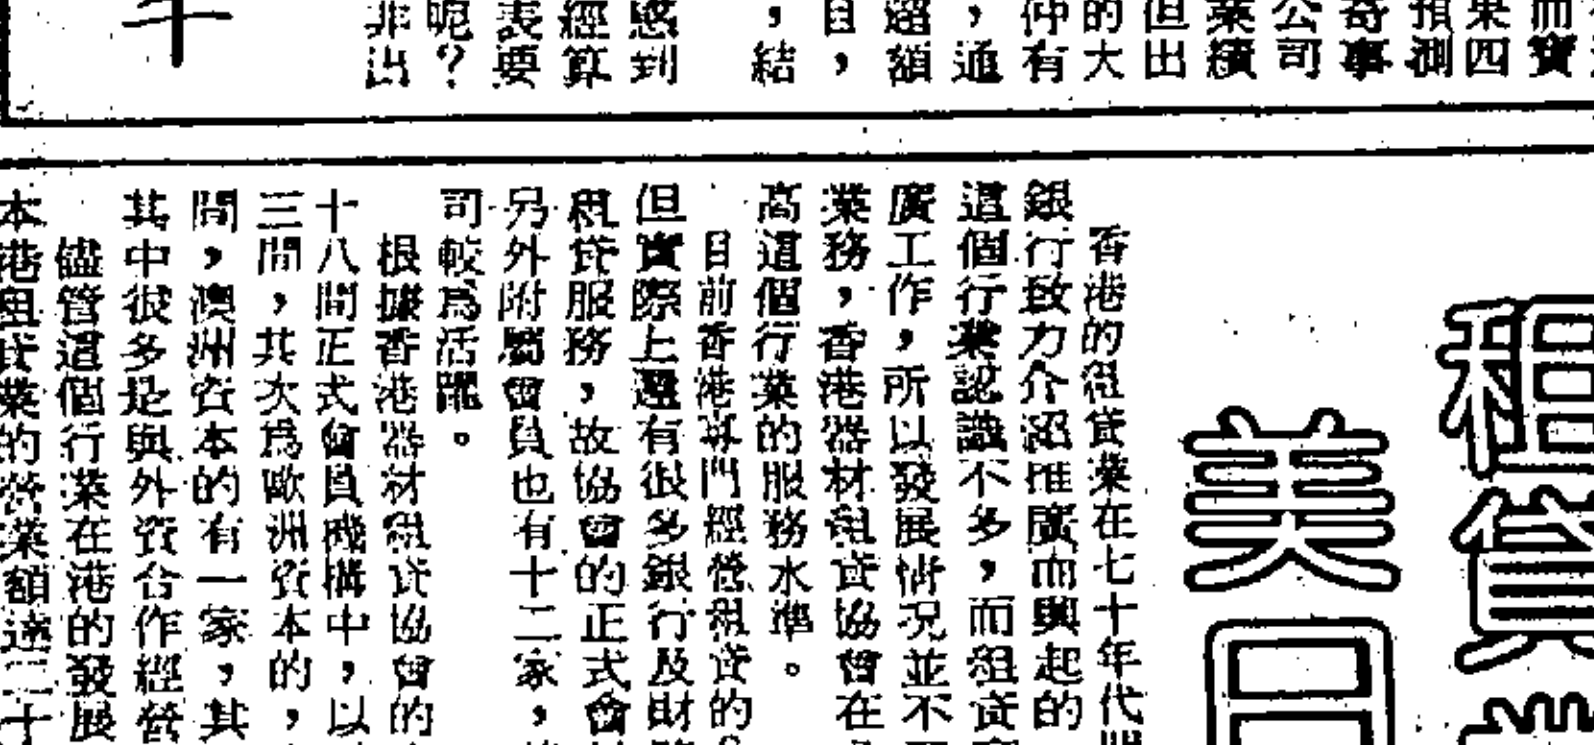 而寶
果四
預測
寄事
公司
業績
但出
的大
仲有
，通
超額
目，
，結
感到
經算
表要
呢？
非出
年
租貸業
美日
香港的租貸業在七十年代
銀行致力介紹推廣而興起的
這個行業認識不多，而租賃
廣工作，所以發展情况並不
業務，香港器材租賃協會在
高這個行業的服務水準。
目前香港專門經營租賃的
但實際上還有很多銀行及財
租賃服務，故協會的正式會
另外附屬會員也有十二家，
司較爲活躍。
根據香港器材租賃協會的
十八間正式會員機構中，以
三間，其次爲歐洲資本的，
間，澳洲資本的有一家，其
其中很多是與外資合作經營
儘管這個行業在港的發展
本港租賃業的營業額達二十